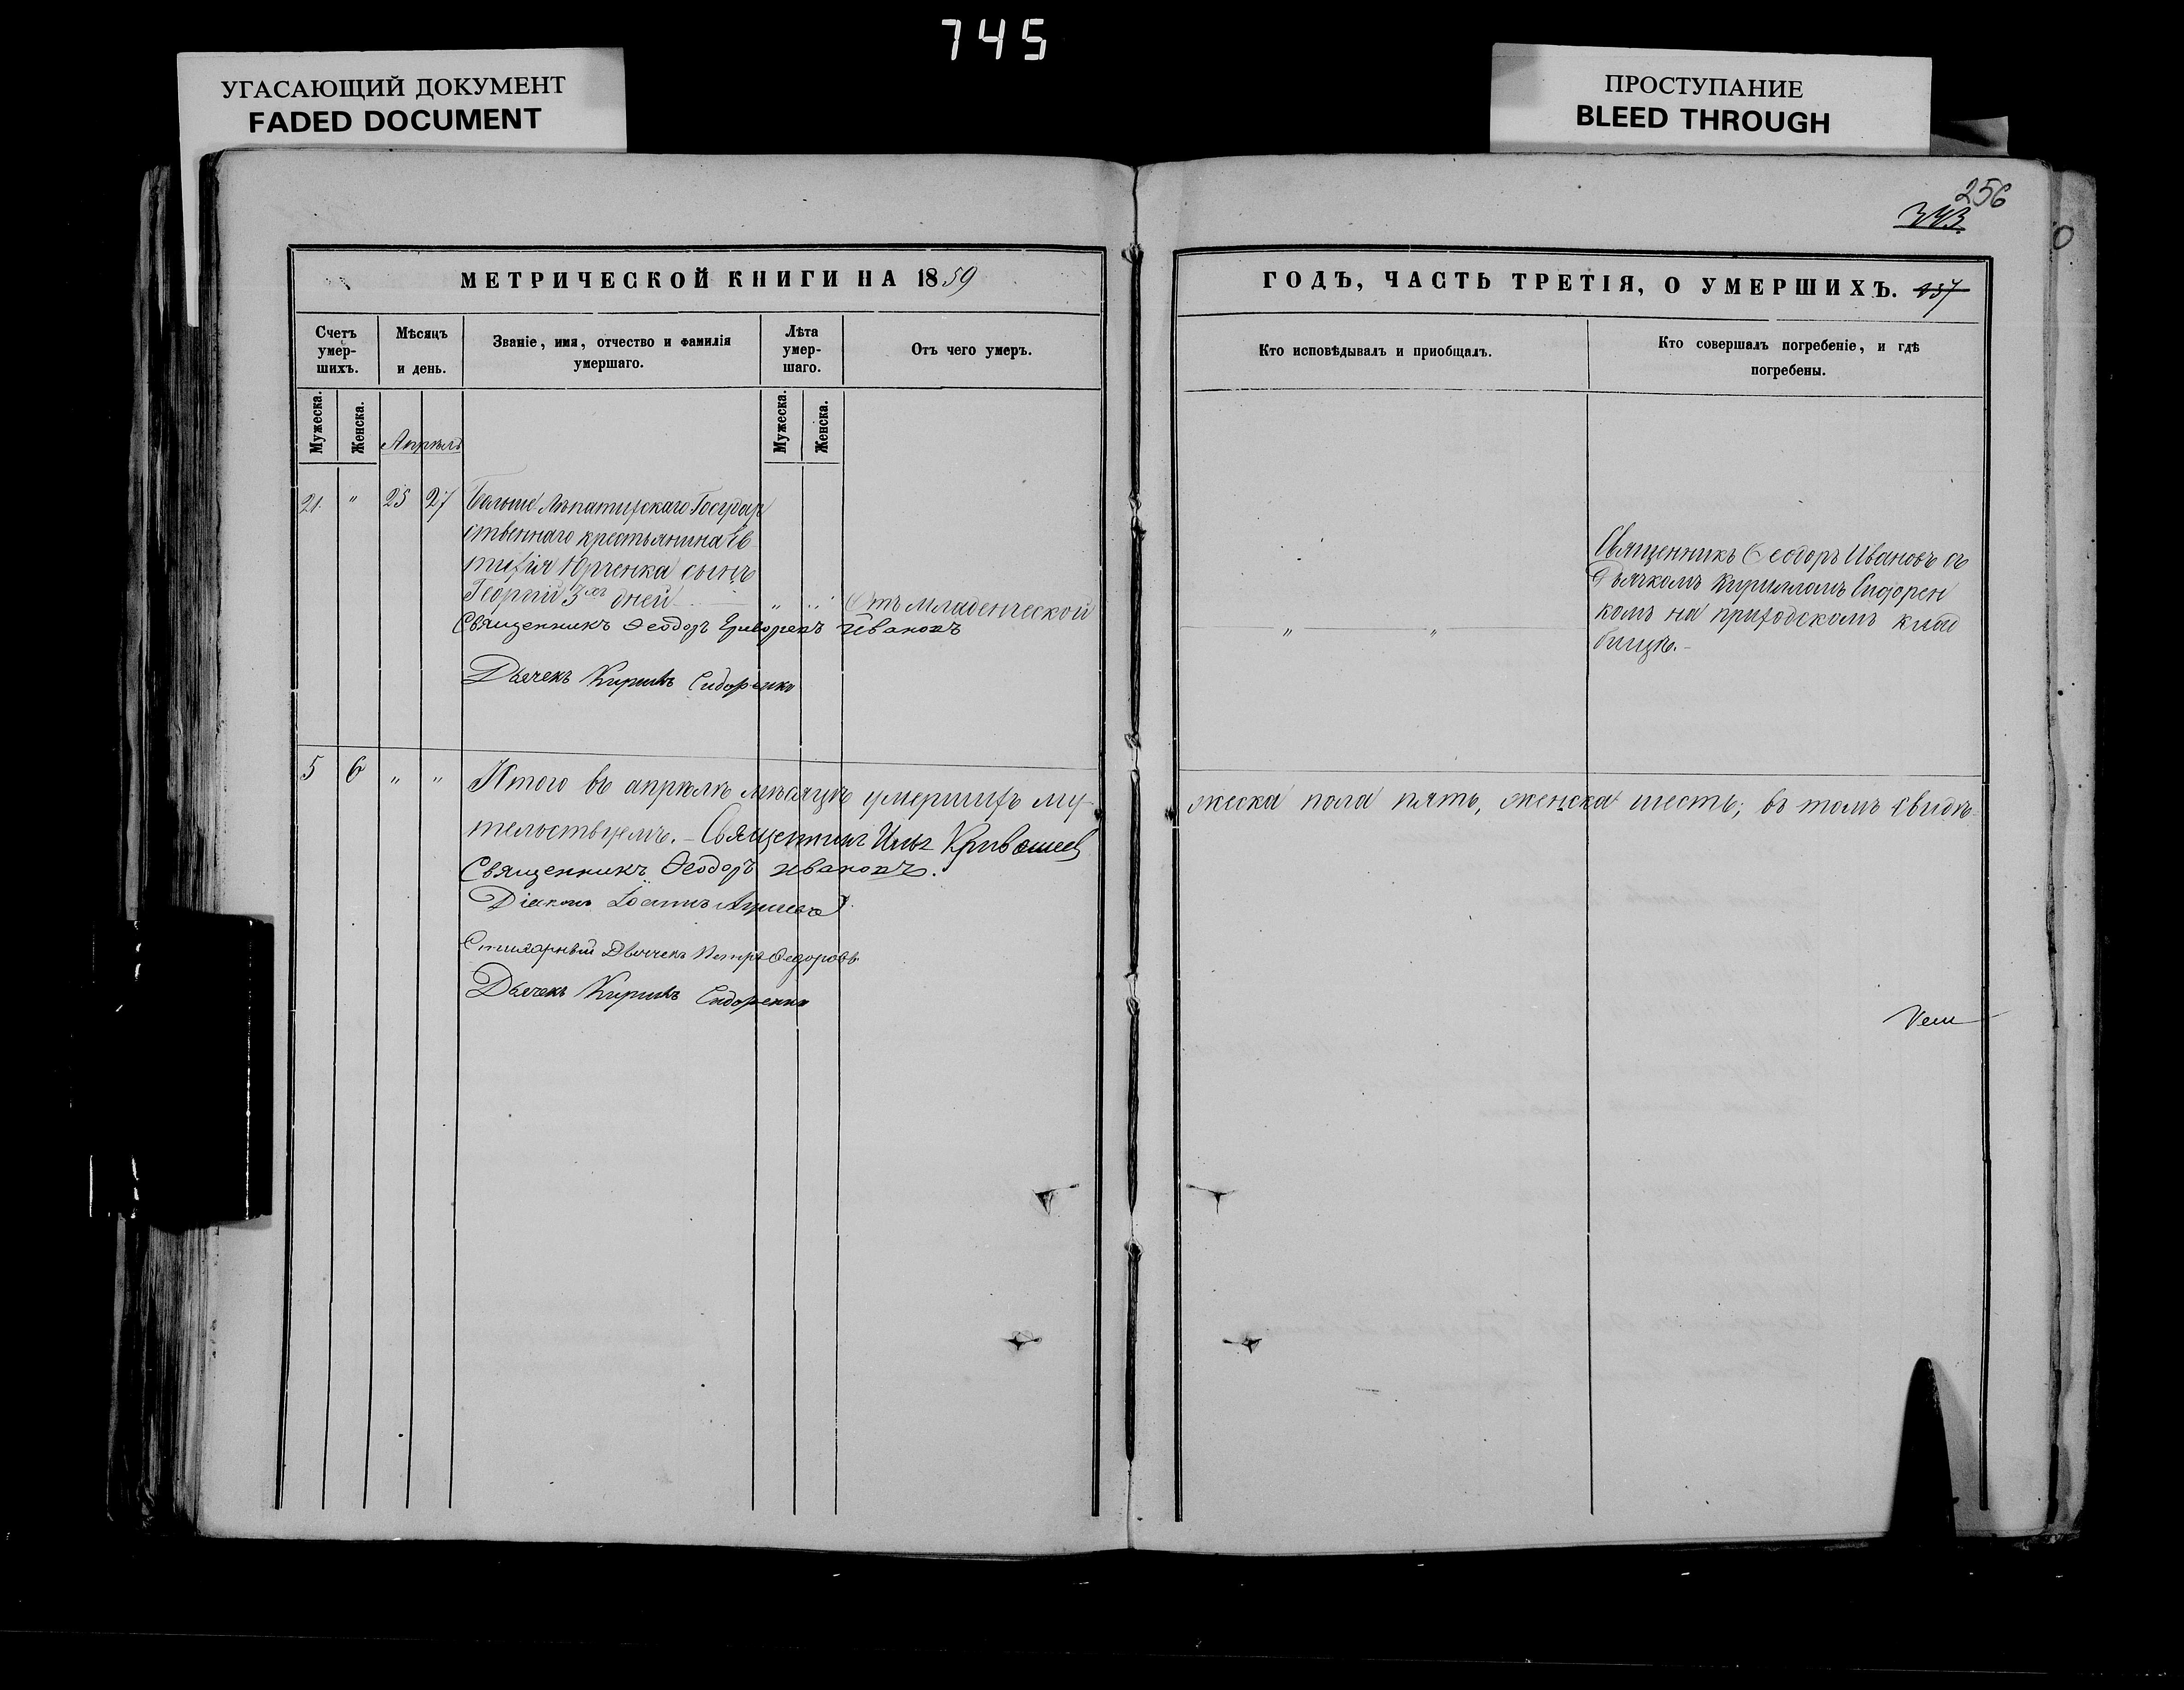 745
УГАСАЮЩИЙ ДОКУМЕНТ
FADED DOCUMENT
ПРОСТУПАНИЕ
BLEED THROUGH
256
343
МЕТРИЧЕСКОЙ КНИГИ НА 1859
ГОДЪ, ЧАСТЬ ТРЕТІЯ, О УМЕРШИХЪ. 257
Счетъ умер-шихъ.
Мѣсяцъ и день.
Званіе, имя, отчество и фамилія умершаго.
Лѣта умер-шаго.
Отъ чего умеръ.
Кто исповѣдывалъ и приобщалъ.
Кто совершалъ погребеніе, и гдѣ погребены.
Мужеска.
Женска.
Апрѣль
Мужеска.
Женска.
21. " 25 27 Государ
ственнаго крестьянина Ев
тифія Юрченка сынъ
Георгій 3хъ дней " " Отъ младенческой
Священникъ Ѳеодоръ Ивановъ
Дьячекъ Кирилъ Сидоренко
" "
Священникъ Ѳеодоръ Ивановъ съ
Дьячкомъ Кирилломъ Сидорен
комъ на приходскомъ клад
бищѣ.-
5 6 " " Итого въ апрѣлѣ мѣсяцѣ умершихъ му-
жеска пола пять, женска шесть; въ томъ свидѣ-
тельствуемъ. - Священникъ Илья Кривошеев
Священникъ Ѳеодоръ Ивановъ.
Діаконъ Іоаннъ
Стихарный Дьячекъ Петръ Ѳедоровъ
Дьячекъ Кирилъ Сидоренко